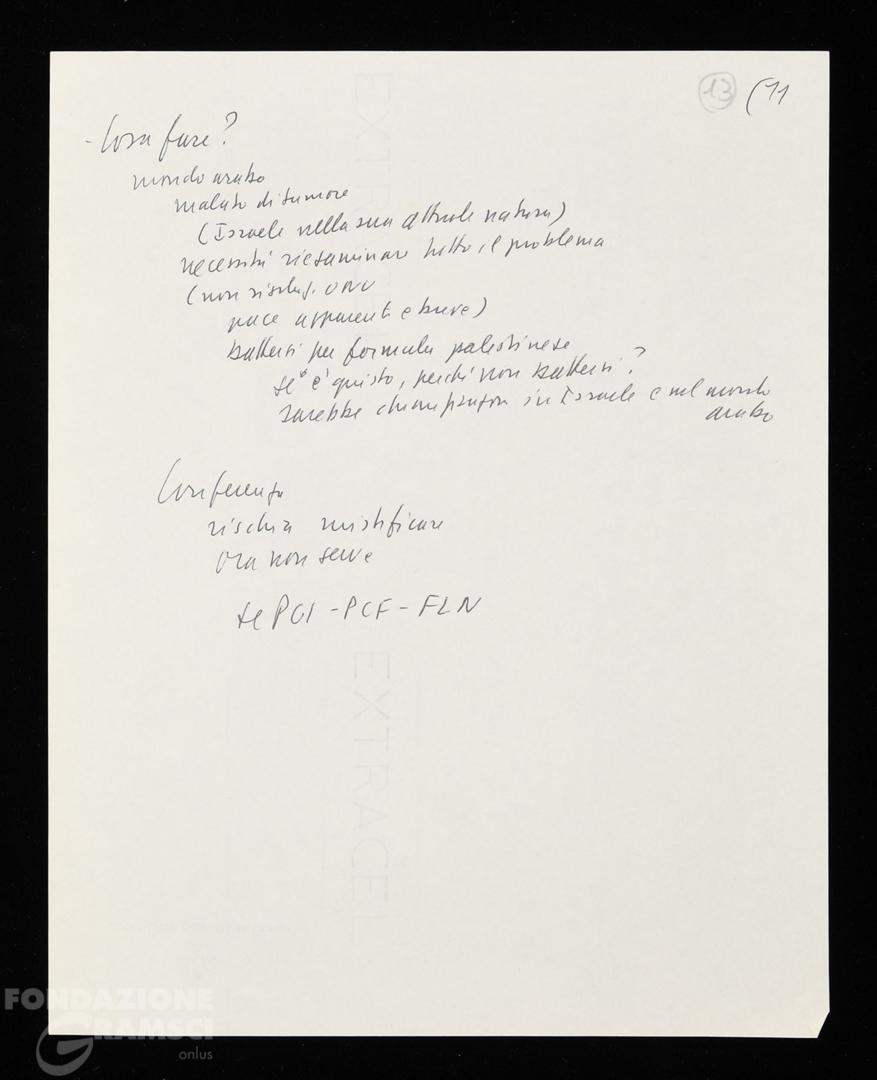 13 (11
- Cosa fare?
mondo arabo
malato di tumore
(Israele nella sua attuale natura)
necessità riesaminare tutto il problema
(non risoluz. ONU
pace apparente e breve)
battersi per formula palestinese
se è questo, perché non battersi?
sarebbe in Israele e nel mondo
arabo
Conferenza
rischia mistificare
Ora non serve
se PCI - PCF - FLN
EXTRACEL
FONDAZIONE
GRAMSCI
onlus